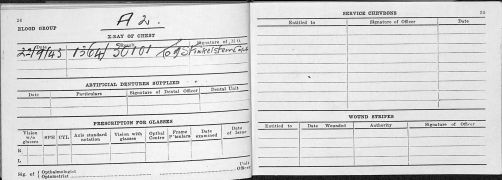 24
A 2.
BLOOD GROUP
X-RAY OF CHEST
Date
Signature of M.O.
22/9/43 50101 Finkelstein Capt
ARTIFICIAL DENTURES SUPPLIED
Date Particulars Signature of Dental Officer Dental Unit
PRESCRIPTION FOR GLASSES
Vision w/o glasses SPH CYL Axis standard notation Vision with glasses Opthal Centre Frame P'ticulars Date examined Date of Issue
R
L
Sig. of Opthalmologist Optometrist
Unit
Officer
SERVICE CHEVRONS
25
Entitled to Signature of Officer Date
WOUND STRIPES
Entitled to Date Wounded Authority Signature of Officer